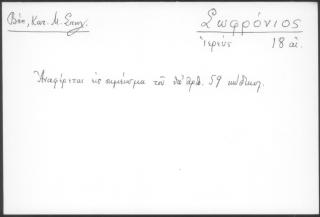 Βέη, Κατ. Μ. Σπηλ.
Σωφρόνιος
ἱερεύς 18 αἰ.
Ἀναφέρεται εἰς σημείωμα τοῦ ὑπ' ἀριθ. 59 κώδικος.